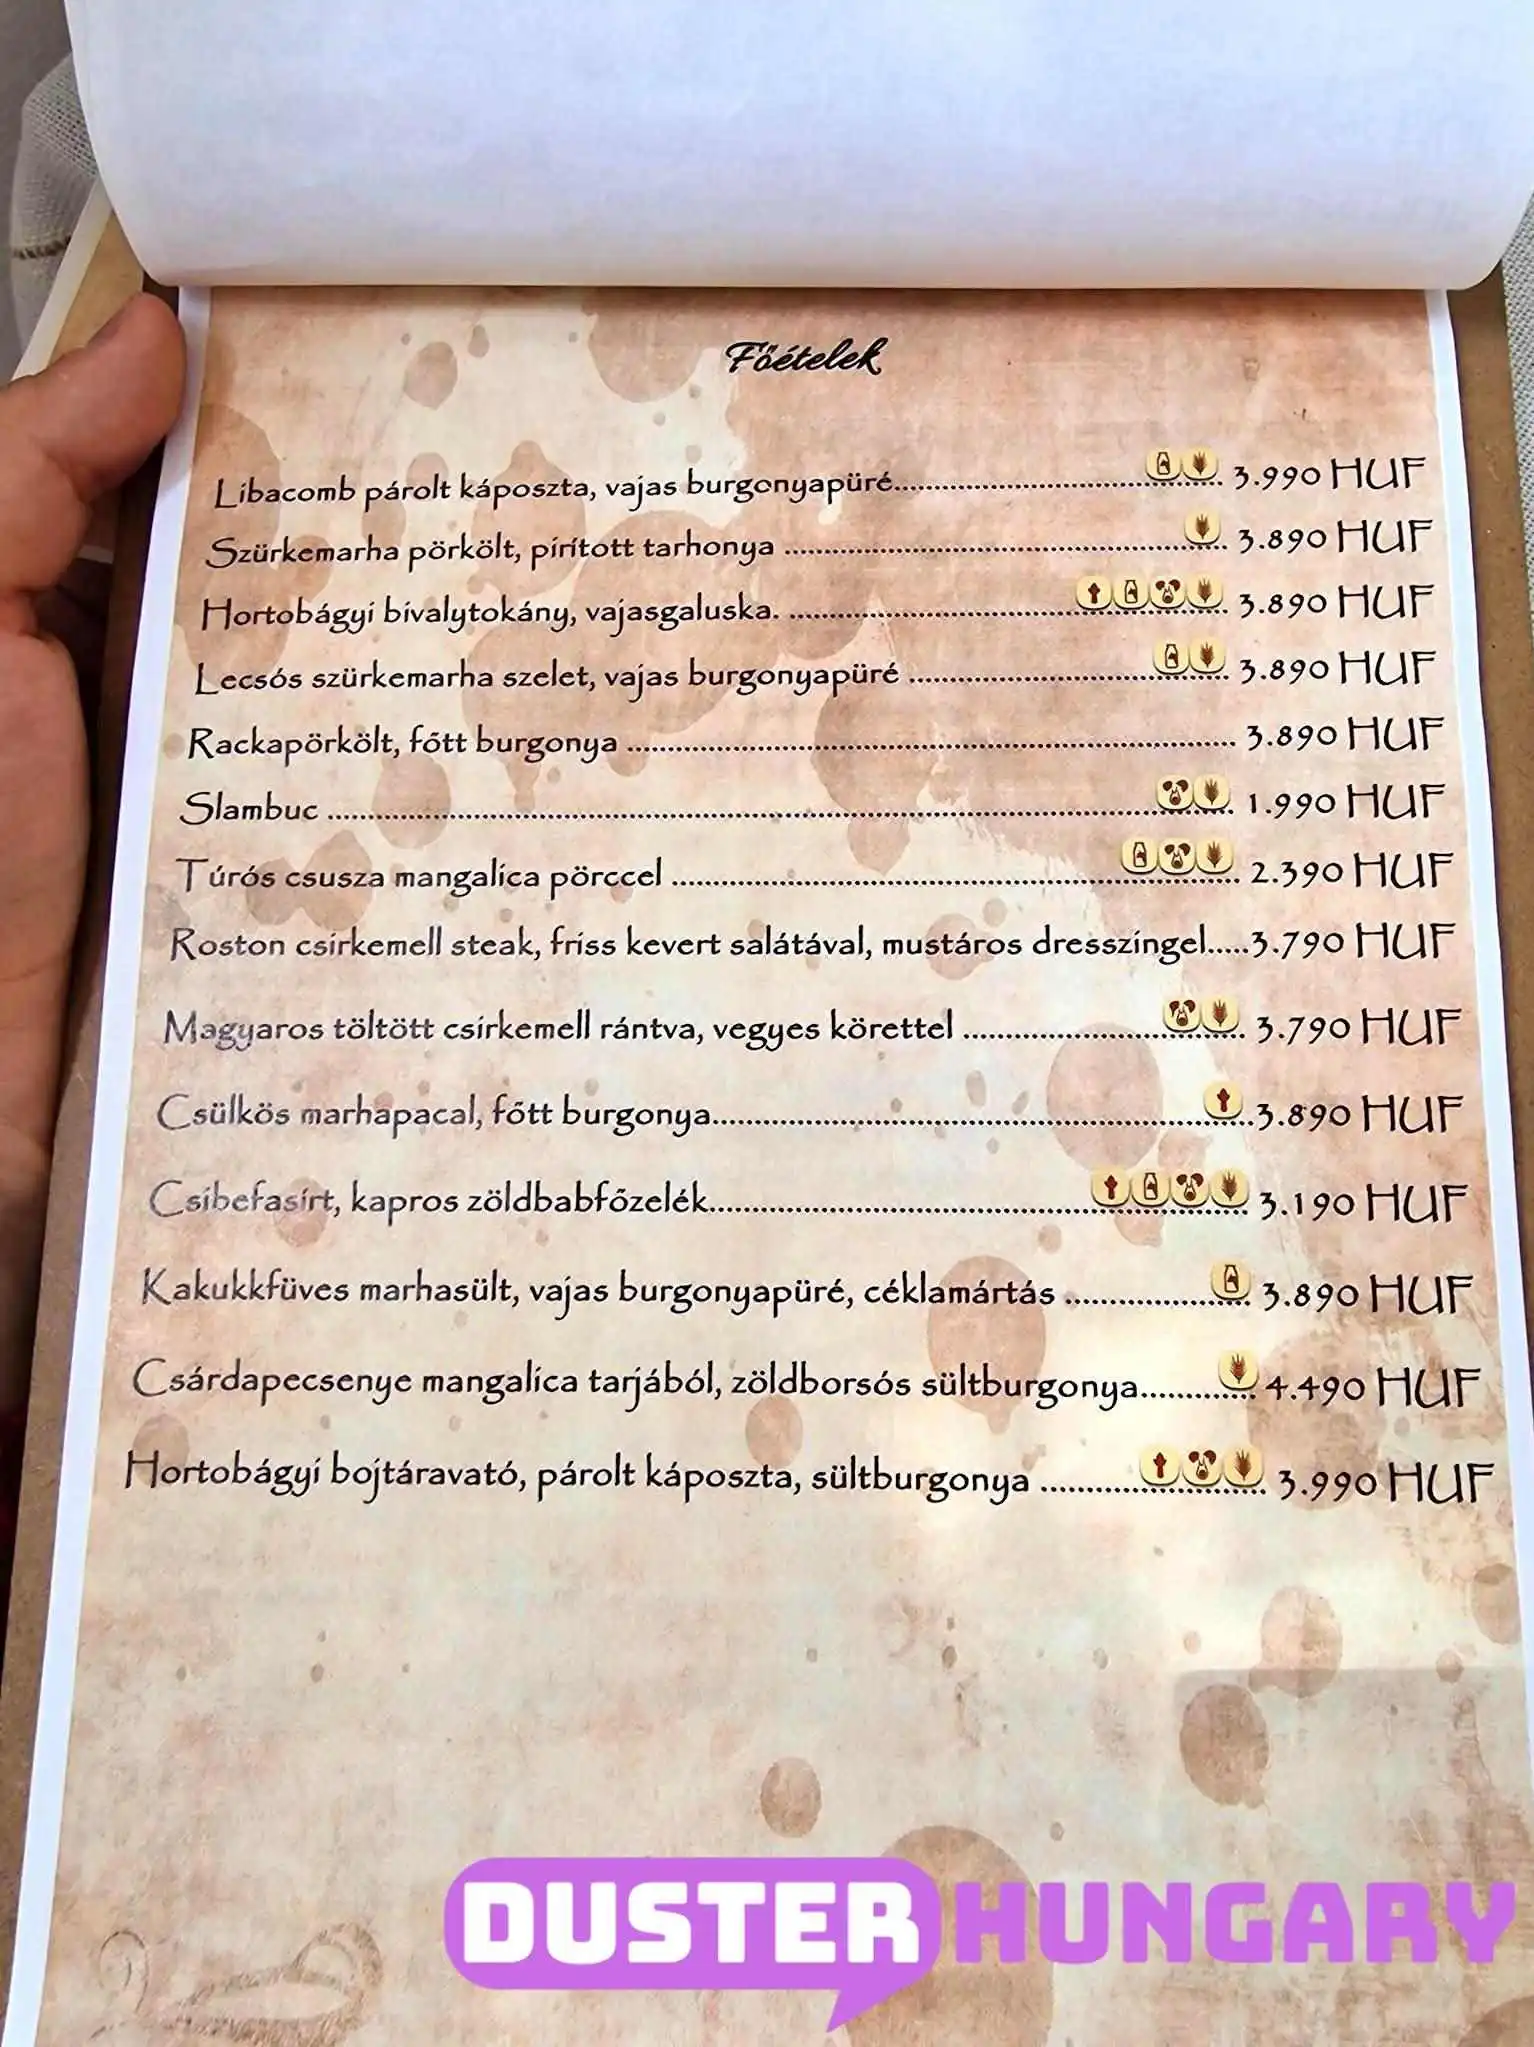 Főételek
Libacomb párolt káposzta, vajas burgonyapüré.......... 3.990 HUF
Szürkemarha pörkölt, pirított tarhonya .......... 3.890 HUF
Hortobágyi bivalytokány, vajasgaluska. .......... 3.890 HUF
Lecsós szürkemarha szelet, vajas burgonyapüré .......... 3.890 HUF
Rackapörkölt, főtt burgonya .......... 3.890 HUF
Slambuc .......... 1.990 HUF
Túrós csusza mangalica pörccel .......... 2.390 HUF
Roston csirkemell steak, friss kevert salátával, mustáros dresszingel.....3.790 HUF
Magyaros töltött csirkemell rántva, vegyes körettel .......... 3.790 HUF
Csülkös marhapacal, főtt burgonya..........3.890 HUF
Csibefasírt, kapros zöldbabfőzelék.......... 3.190 HUF
Kakukkfüves marhasült, vajas burgonyapüré, céklamártás .......... 3.890 HUF
Csárdapecsenye mangalica tarjából, zöldborsós sültburgonya.......... 4.490 HUF
Hortobágyi bojtáravató, párolt káposzta, sültburgonya .......... 3.990 HUF
DUSTER HUNGARY